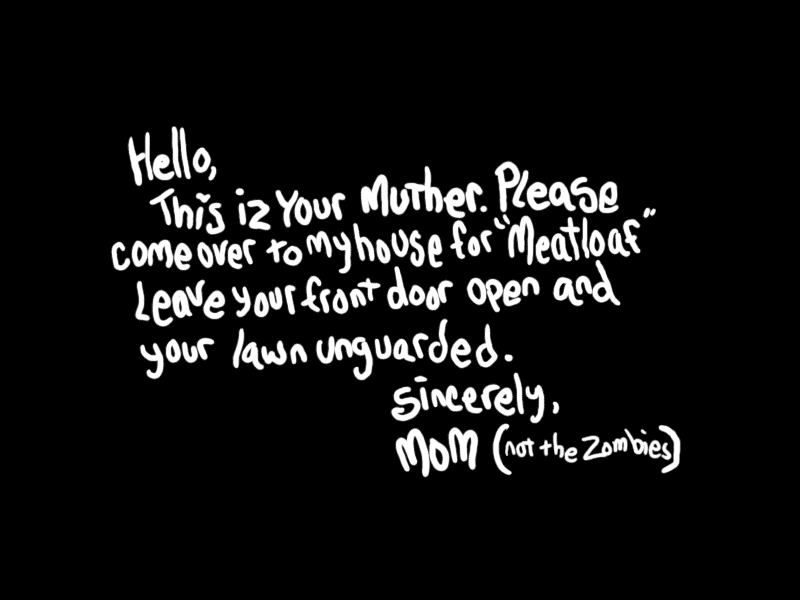 Hello,
This iz Your Muther. Please
come over to my house for "Meatloaf"
Leave your front door open and
your lawn unguarded.
sincerely,
MoM (not the Zombies)